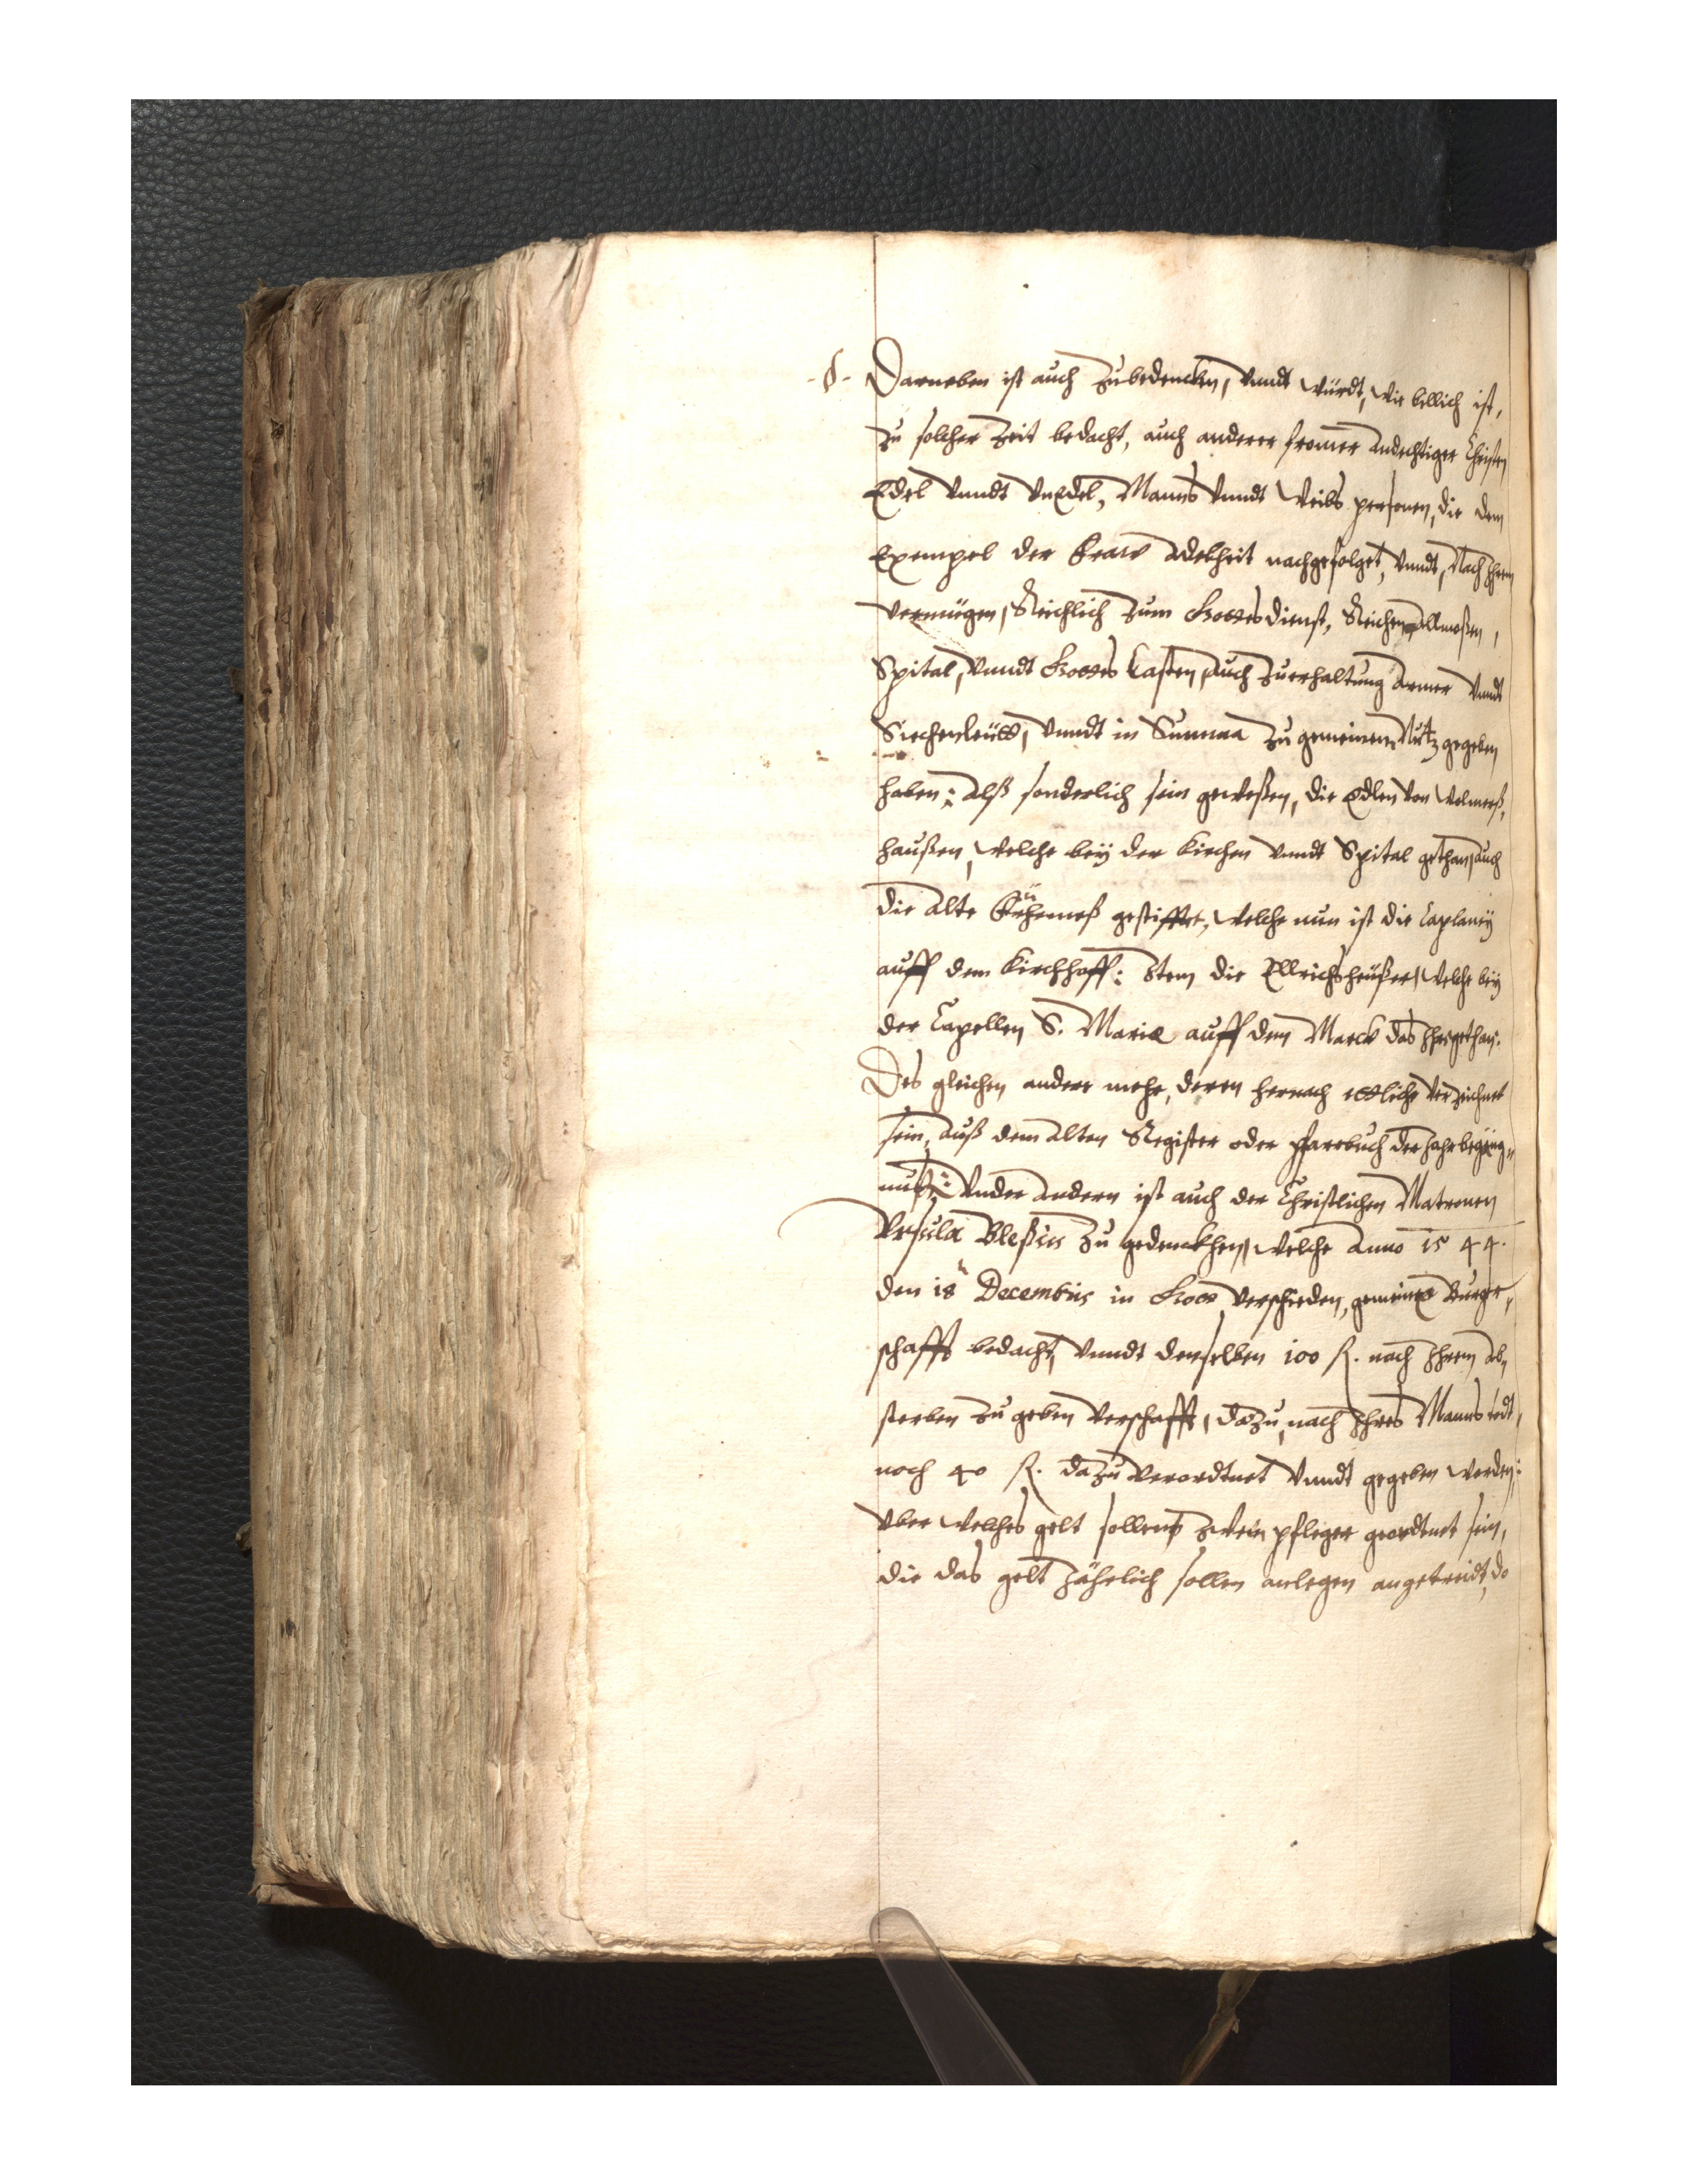 -§- Darneben ist auch zubedencken, vnndt würdt, wie billich ist,
zu solcher zeit bedacht, auch anderer fromer andechtiger Christen
Edel vnndt vnEdel, Manns vnndt Weibs personen, die dem
Exempel der Fraw Adelheit nachgefolget, vnndt, Nach Ihrem
vermügen, Reichlich zum Gottesdienst, Reichen Allmoßen,
Spital, vnndt Gottes Casten, auch zuerhaltung Armer vnndt
Siechenleütt, vnndt in Summa zu gemeinem Nutz gegeben
haben: Alß sonderlich sein geweßen, die Edlen von Wolmerß,
haußen, welche bey der Kirchen vnndt Spital gethan, auch
die alte Frühemeß gestifftet, welche nun ist die Caplaney
auff dem Kirchhoff: Item die Ellrichshäußer, welche bey
der Capellen S. Mariæ auff dem Marck das Ihr gethan.
Des gleichen andere mehr, deren hernach ettliche verzeichnet
sein, auß dem alten Register oder Pfarrbuch der Jahrbegäng„
nuß: Vnder andern ist auch der Christlichen Matronen
Vrsula Bleßin zu gedenckhen, welche Anno 1544.
den 18 Decembris in Gott verschieden, gemeine Burger„
schafft bedacht, vnndt denselben 100 fl. nach Ihrem ab„
sterben zu geben verschafft, dazu, nach Ihres Manns todt,
noch 40 fl. dazu verordtnet vnndt gegeben worden:
vber welches gelt sollen zwein pfleger geordtnet sein,
die das gelt Jährlich sollen anlegen an getreidt, do